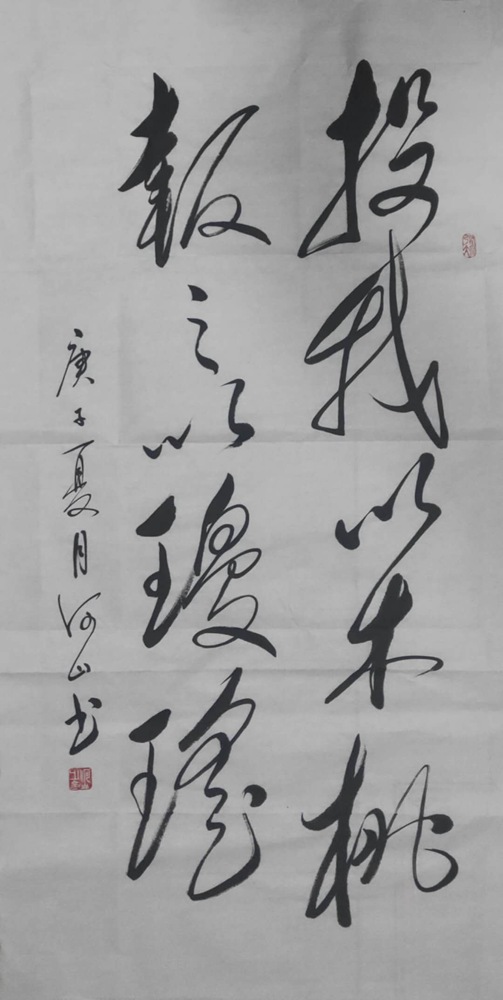 投我以木桃
報之以瓊瑤
庚子夏月河山书